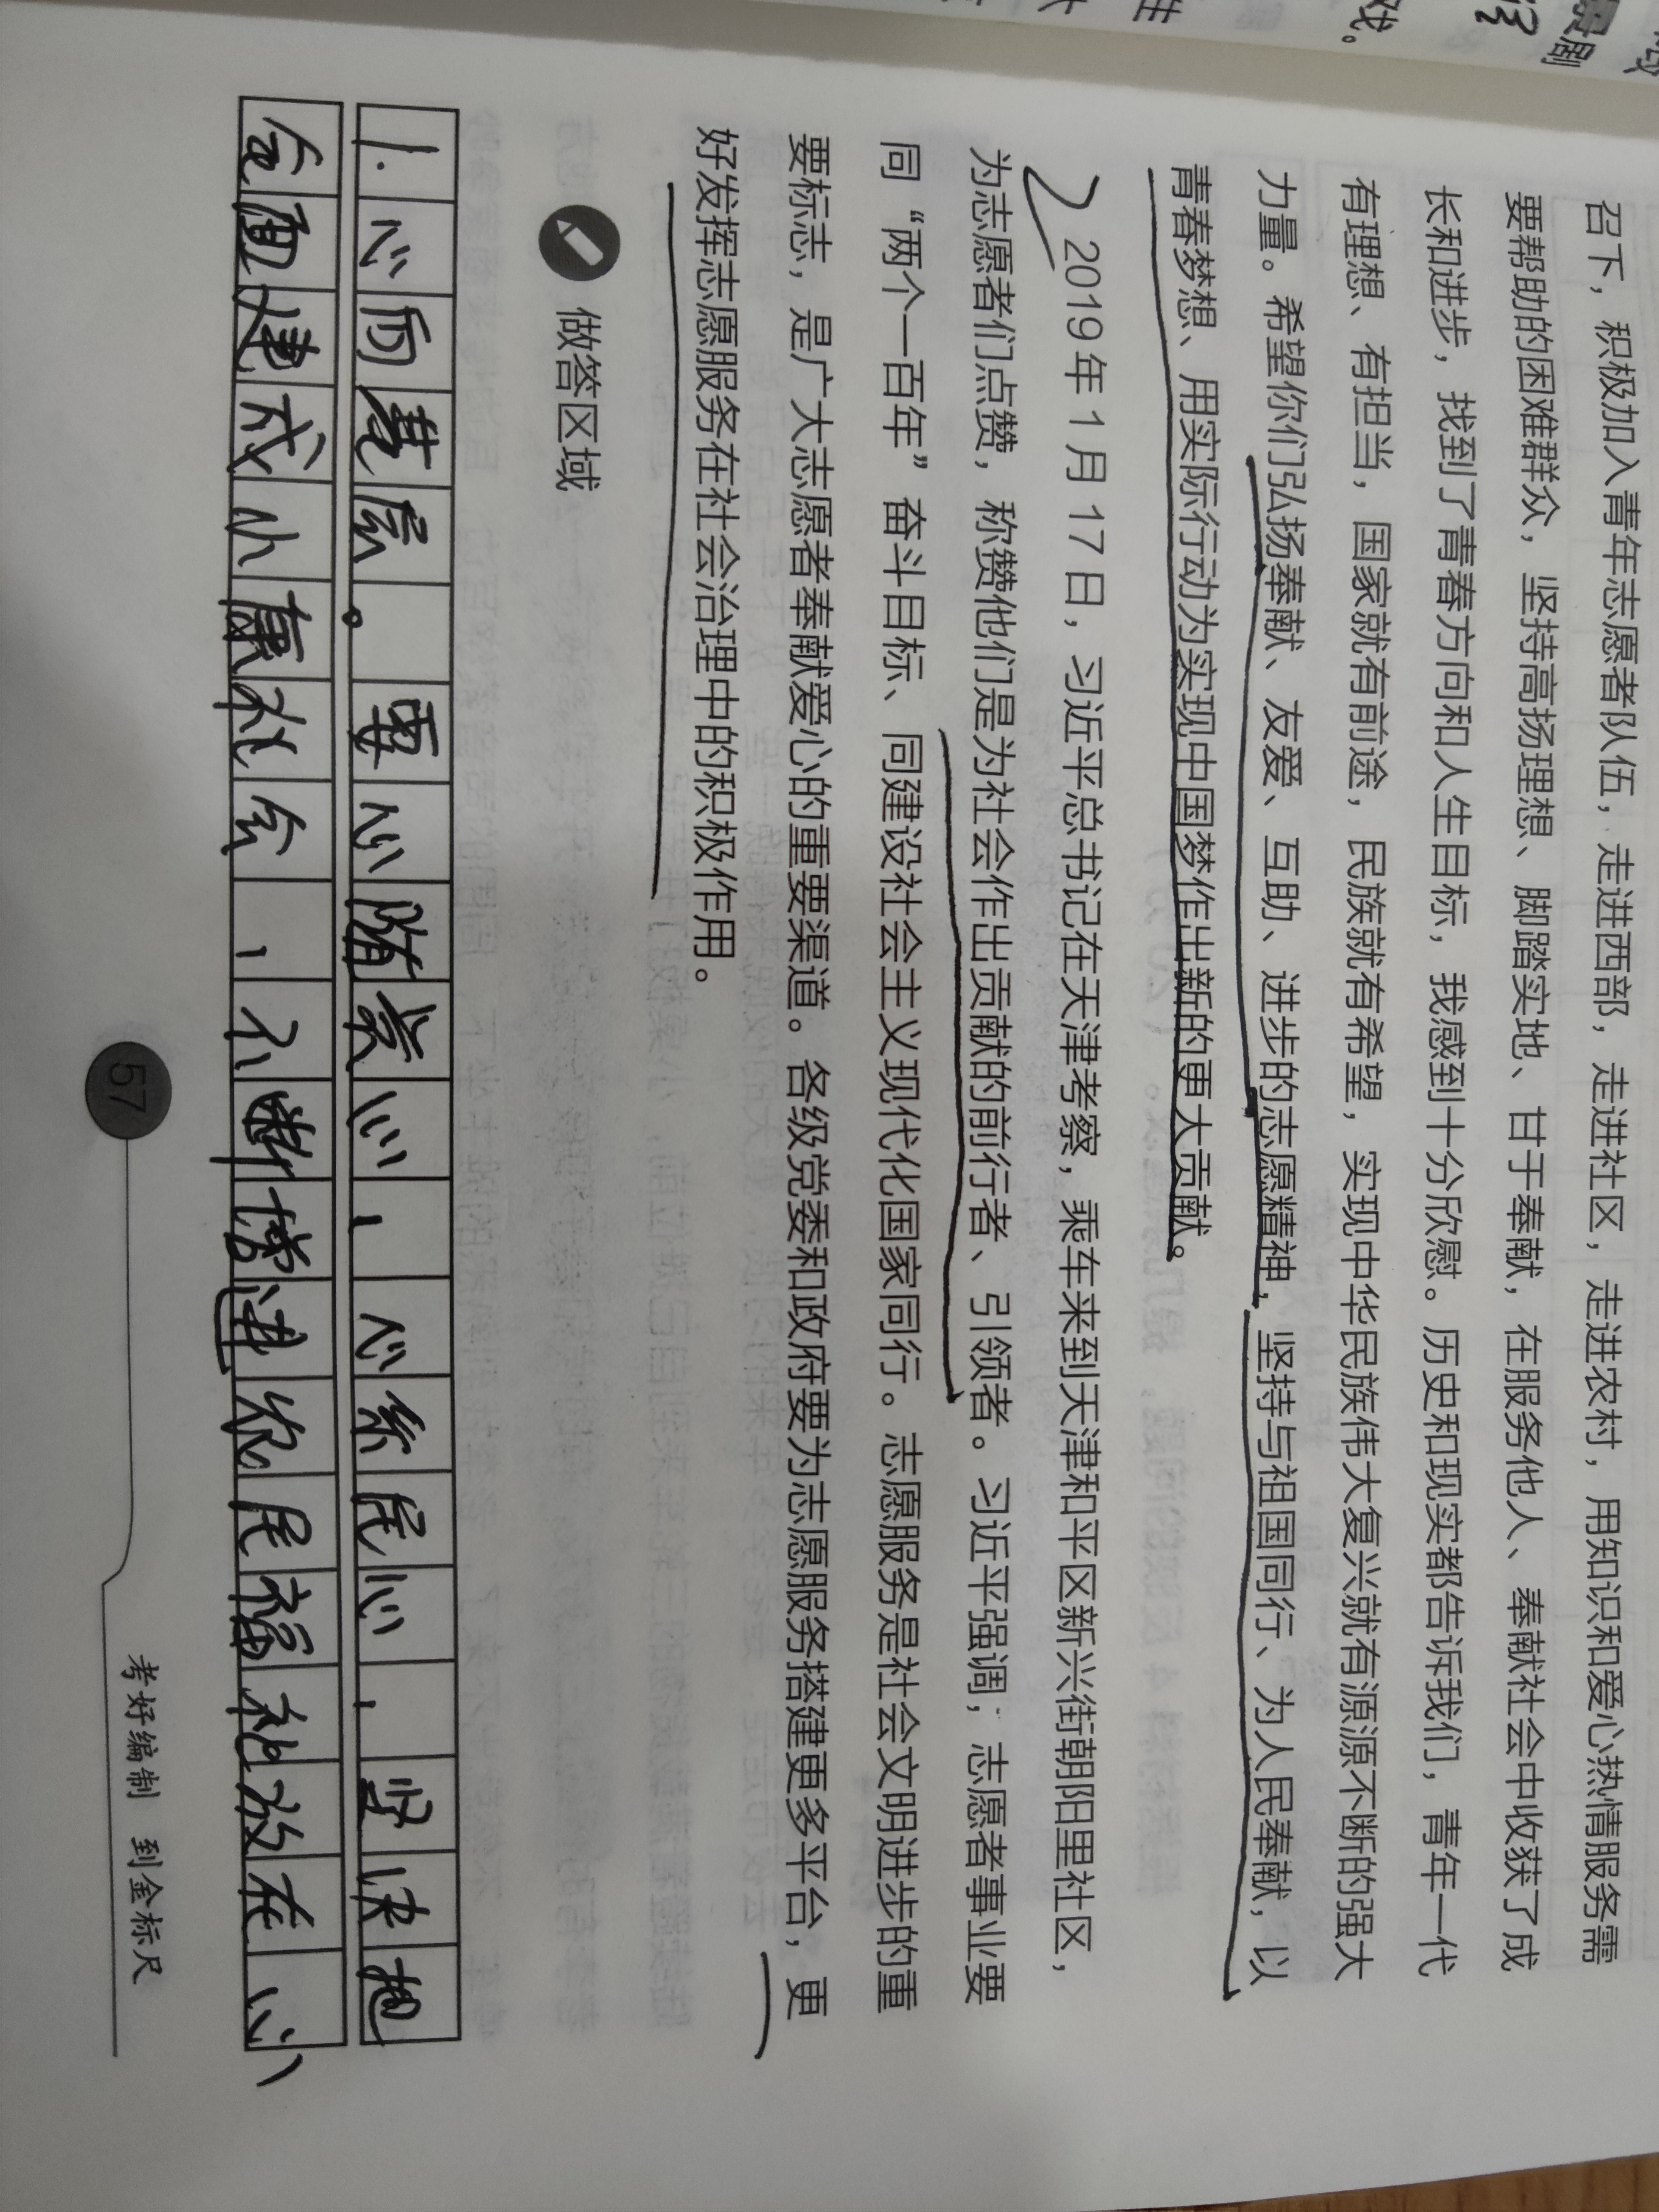 召下，积极加入青年志愿者队伍，走进西部，走进社区，走进农村，用知识和爱心热情服务需
要帮助的困难群众，坚持高扬理想、脚踏实地、甘于奉献，在服务他人、奉献社会中收获了成
长和进步，找到了青春方向和人生目标，我感到十分欣慰。历史和现实都告诉我们，青年一代
有理想、有担当，国家就有前途，民族就有希望，实现中华民族伟大复兴就有源源不断的强大
力量。希望你们弘扬奉献、友爱、互助、进步的志愿精神，坚持与祖国同行、为人民奉献，以
青春梦想、用实际行动为实现中国梦作出新的更大贡献。
2019年1月17日，习近平总书记在天津考察，乘车来到天津和平区新兴街朝阳里社区，
为志愿者们点赞，称赞他们是为社会作出贡献的前行者、引领者。习近平强调，志愿者事业要
同“两个一百年”奋斗目标、同建设社会主义现代化国家同行。志愿服务是社会文明进步的重
要标志，是广大志愿者奉献爱心的重要渠道。各级党委和政府要为志愿服务搭建更多平台，更
好发挥志愿服务在社会治理中的积极作用。
做答区域
1.心向基层。要心随党心，心系民心，坚决把
全面建成小康社会，不断增进农民福祉放在心
57
考好编制 到金标尺